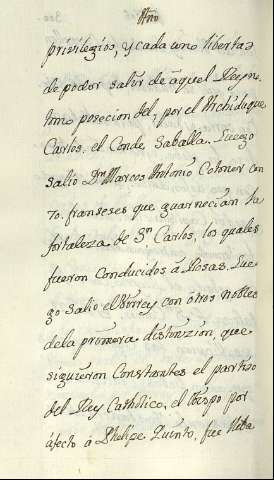 Año
privilegios, y cada uno libertad
de poder salir de aquel Reyno
tomo posecion del, por el Archiduque
Carlos, el Conde Saballa. Luego
salio Dn Marcos Antonio Cotoner con
70. franseses que guarnecian la
fortaleza de Sn. Carlos, los quales
fueron conducidos á Rosas. Lue
go salio el Virrey con otros nobles
de la primera distinzión, que
siguieron Constantes el partido
del Rey Catholico, el Obispo por
afecto á Phelipe Quinto, fue lleba